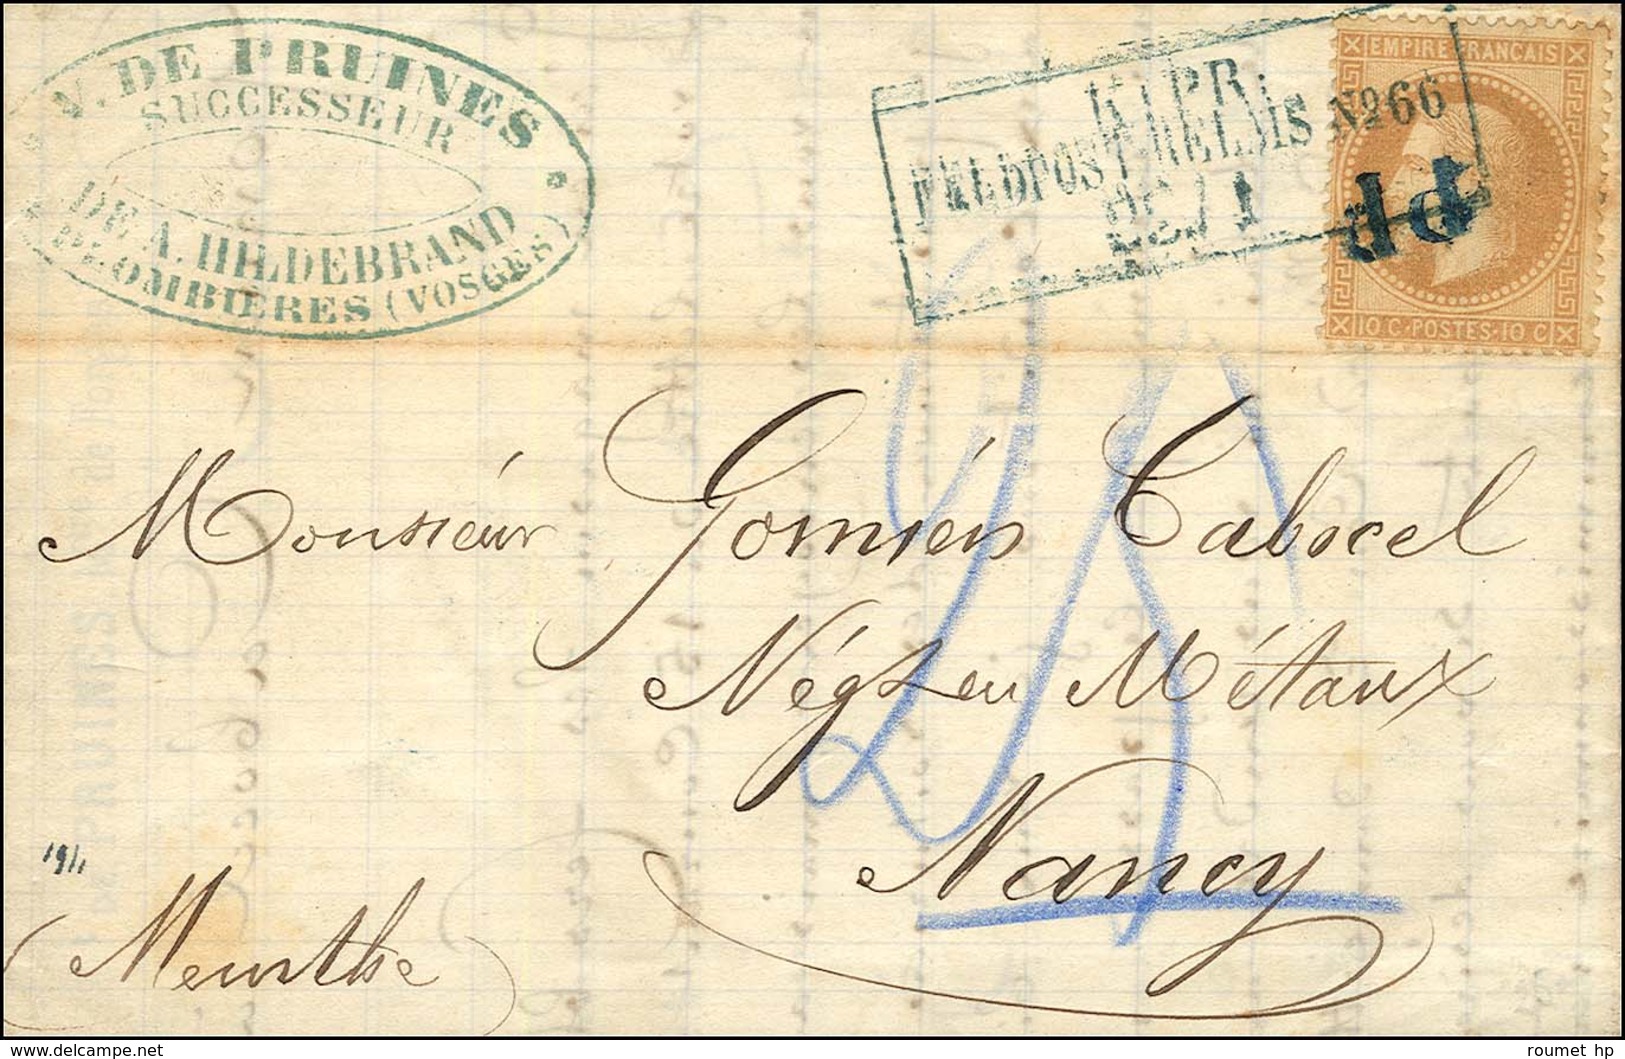 V. DE PRUINES
SUCCESSEUR
DE A. HILDEBRAND
PLOMBIÈRES (VOSGES)
K. PR.
FELDPOST RELAIS No 66
25/1
EMPIRE FRANÇAIS
PP
10 C. POSTES 10 C
25
Monsieur Gomien Cabocel
Négt en Métaux
Nancy
19/1
Meurthe
roumet hp